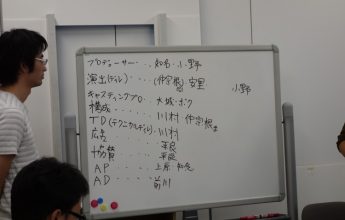 プロデューサー‥知名・小野
演出(テレ)・・・(仲宗根)安里
小野
キャスティングプロ・大城・ボク
構成・・・・川村 仲宗根
TD(テクニカルディレ)・川村
広告・・・・平良
協賛・・・・平良
AP・・・・・上原 知念
AD・・・・・前川